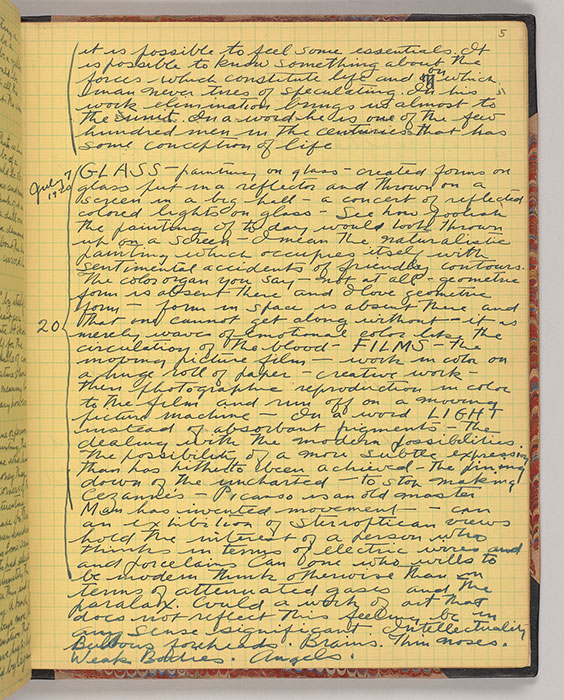 5
it is possible to feel some essentials. It
is possible to know something about the
forces which constitute life and on which
man never tires of speculating. In his
work elimination brings us almost to
the sunset. In a word he is one of the few
hundred men in the centuries that has
some conception of life
July 7
1920
GLASS – painting on glass – created forms on
glass put in a reflector and thrown on a
screen in a big hall – a concert of reflected
colored lights on glass – See how foolish
the painting of to day would look thrown
up on a screen – I mean the naturalistic
painting which occupies itself with
sentimental accidents of friendly contours.
The color organ you say – not at all – geometric
form is absent there and I love geometric
form – form in space is absent there and
that one cannot get along without – it is
merely waves of emotional color like the
circulation of the blood – FILMS – the
moving picture film – work in color on
a huge roll of paper – creative work –
then photographic reproduction in color
to the film and run off on a moving
picture machine – In a word LIGHT
instead of absorbant pigments – the
dealing with the modern possibilities
the possibility of a more subtle expression
than has hitherto been achieved – The pinning
down of the uncharted – to stop making
Cezannes – Picasso is an old master
Man has invented movement – can
an exhibition of steroptican views
hold the interest of a person who
thinks in terms of electric wires and
and porcelains Can one who wills to
be modern think otherwise than in
terms of attenuated gases and the
paralax. Could a work of art that
does not reflect this feeling be in
any sense significant. Intellectuality
Bulbous foreheads. Brains. Thin noses.
Weak Bodies. Angels.
20